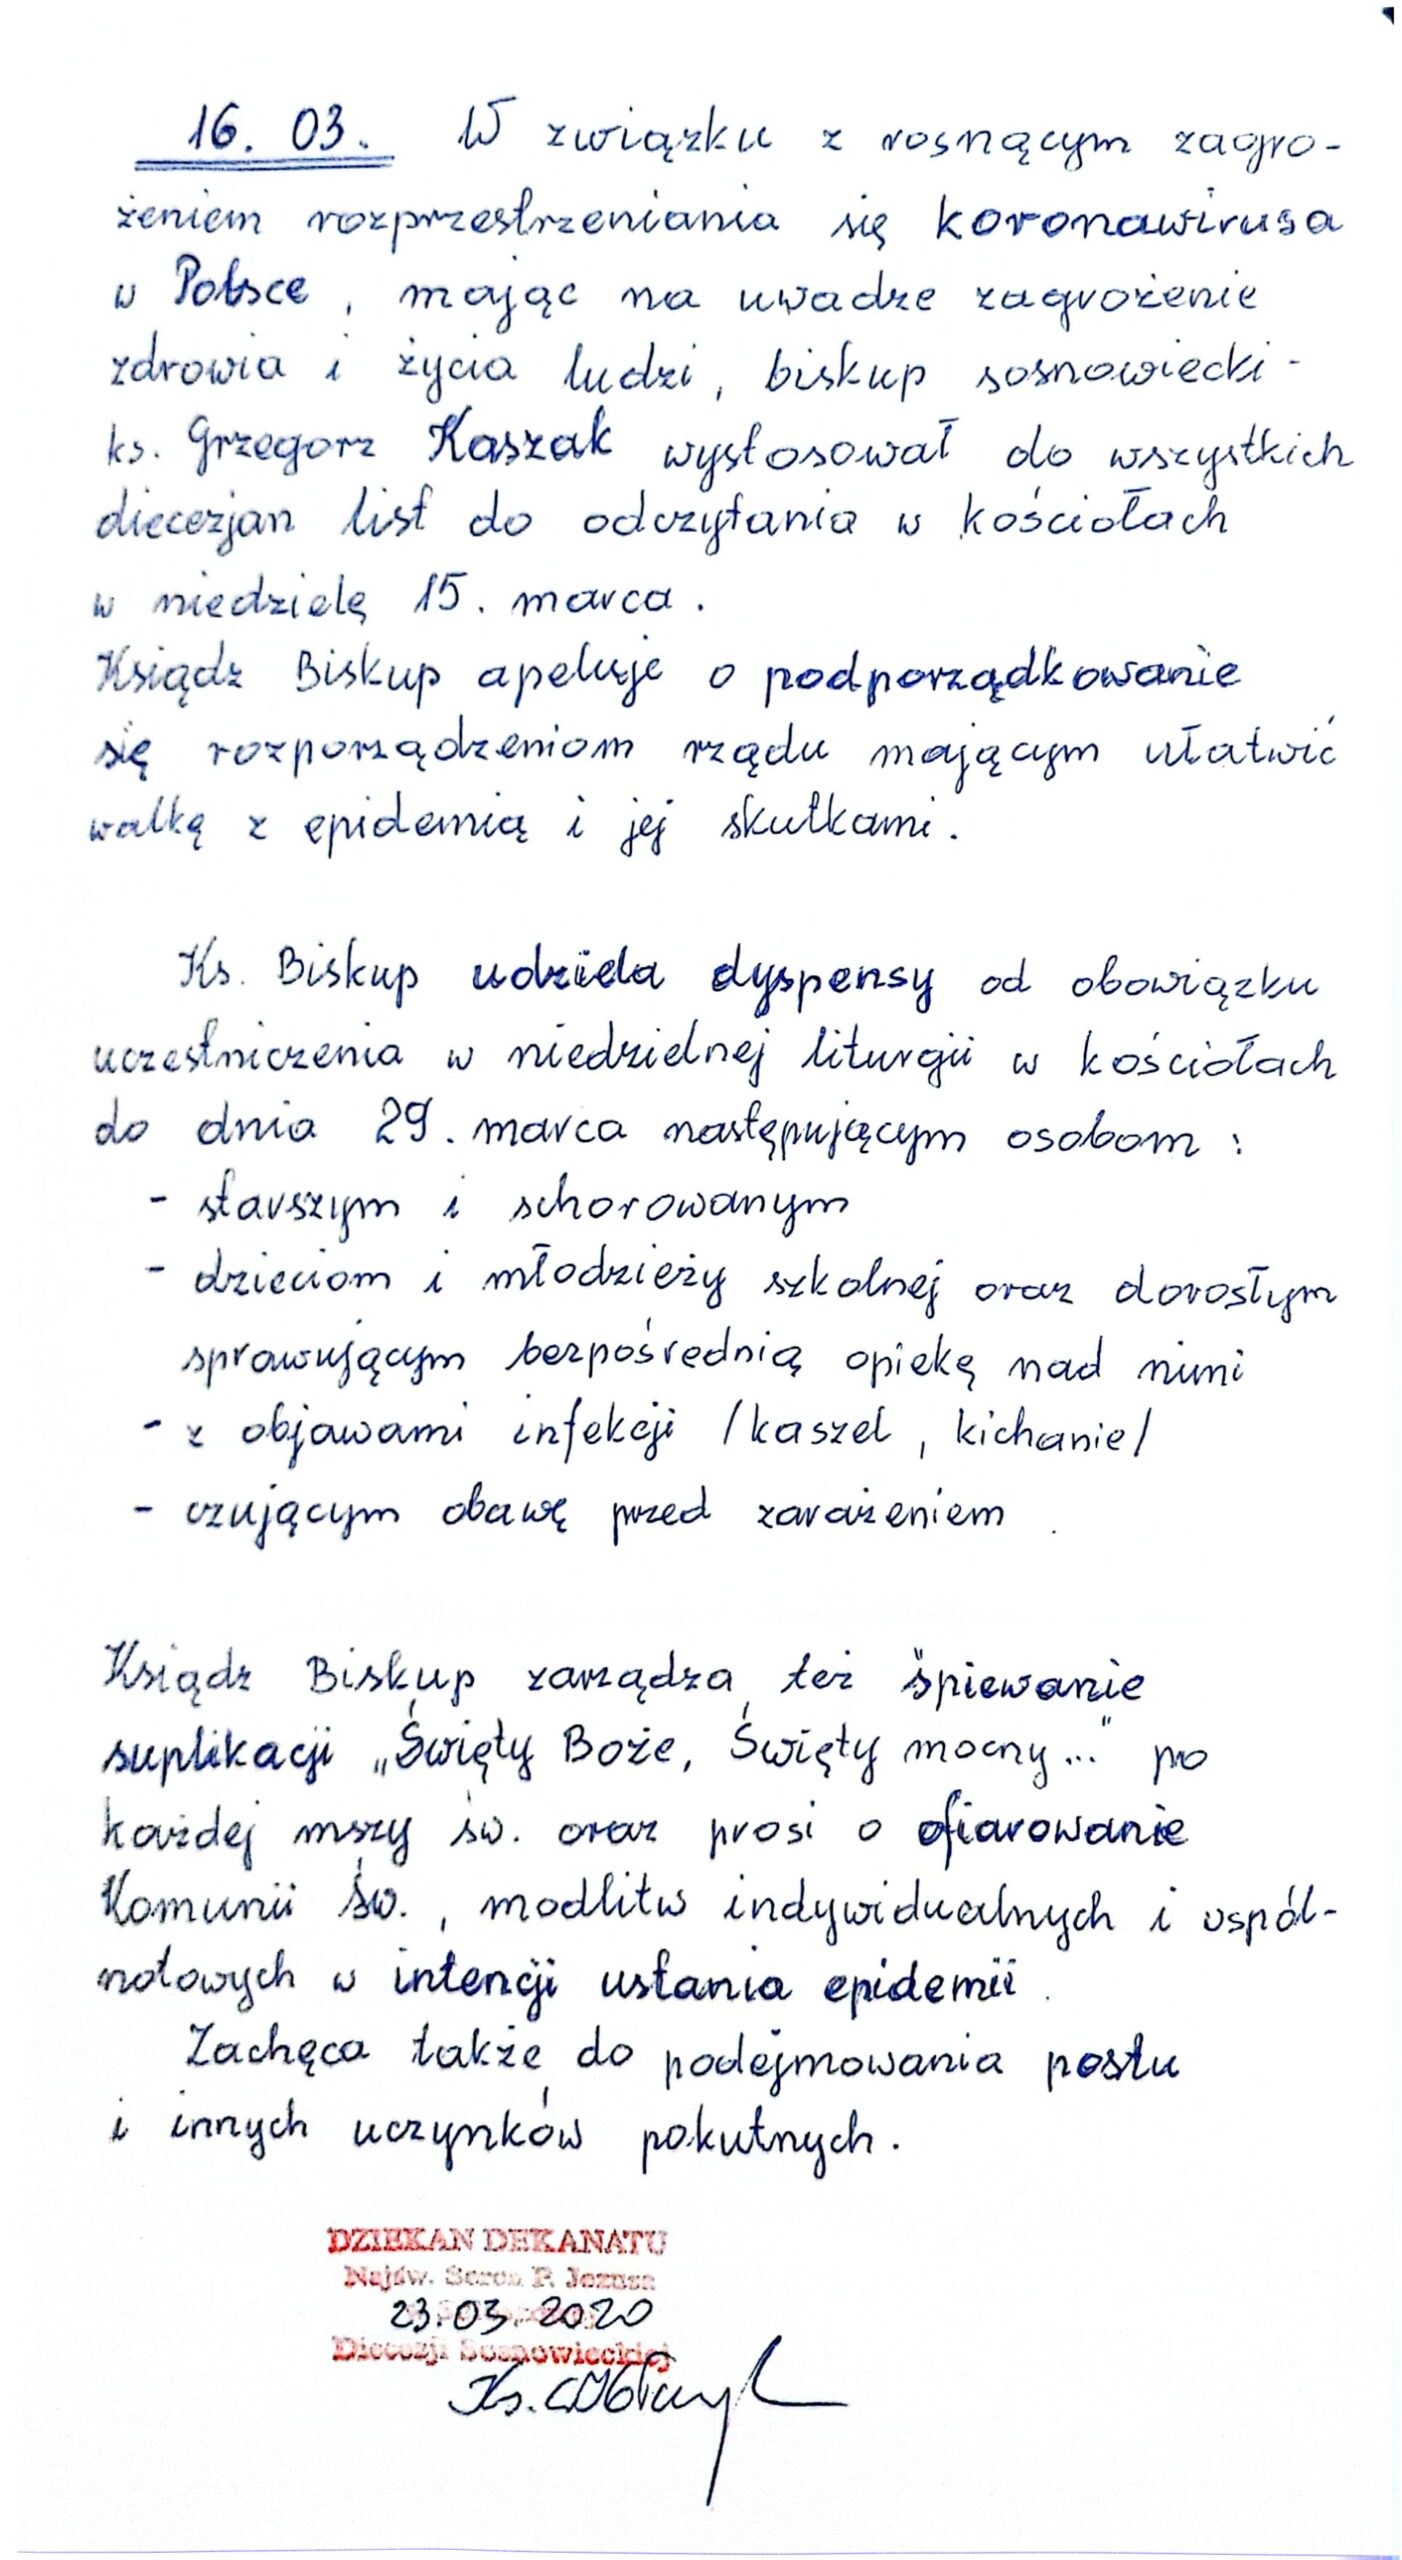 16. 03. W związku z rosnącym zagro-
żeniem rozprzestrzeniania się koronawirusa
w Polsce, mając na uwadze zagrożenie
zdrowia i życia ludzi, biskup sosnowiecki -
ks. Grzegorz Kaszak wystosował do wszystkich
diecezjan list do odczytania w kościołach
w niedzielę 15. marca.
Ksiądz Biskup apeluje o podporządkowanie
się rozporządzeniom rządu mającym ułatwić
walkę z epidemią i jej skutkami.
Ks. Biskup udziela dyspensy od obowiązku
uczestniczenia w niedzielnej liturgii w kościołach
do dnia 29. marca następującym osobom:
- starszym i schorowanym
- dzieciom i młodzieży szkolnej oraz dorosłym
sprawującym bezpośrednią opiekę nad nimi
- z objawami infekcji /kaszel, kichanie/
- czującym obawę przed zarażeniem.
Ksiądz Biskup zarządza też śpiewanie
suplikacji „Święty Boże, Święty mocny..." po
każdej mszy św. oraz prosi o ofiarowanie
Komunii św., modlitw indywidualnych i wspól-
notowych w intencji ustania epidemii.
Zachęca także do podejmowania postu
i innych uczynków pokutnych.
DZIEKAN DEKANATU
Najśw. Serca P. Jezusa
23.03.2020
Diecezji Sosnowieckiej
Ks.